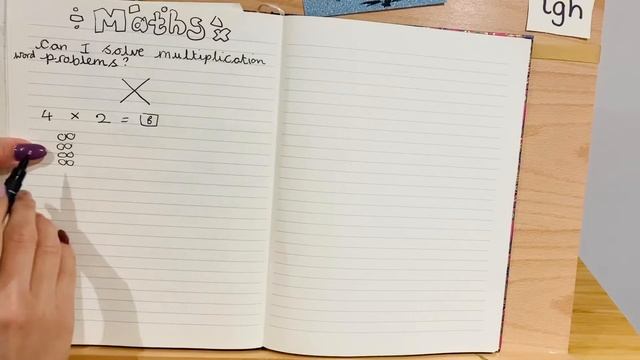 ÷ Maths x
Can I solve multiplication
word problems?
×
4 × 2 = 8
igh